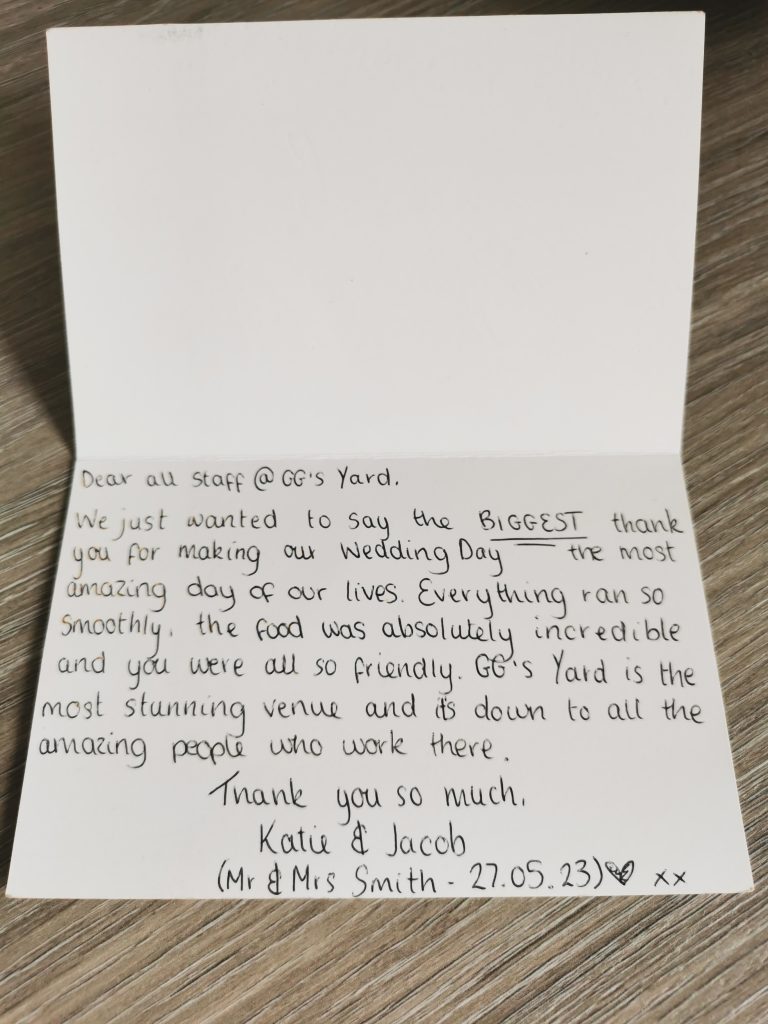 Dear all staff @ GG's Yard.
We just wanted to say the BIGGEST thank
you for making our Wedding Day the most
amazing day of our lives. Everything ran so
Smoothly, the food was absolutely incredible
and you were all so friendly. GG's Yard is the
most stunning venue and its down to all the
amazing people who work there.
Thank you so much,
Katie & Jacob
(Mr & Mrs Smith - 27.05.23) ♥ xx